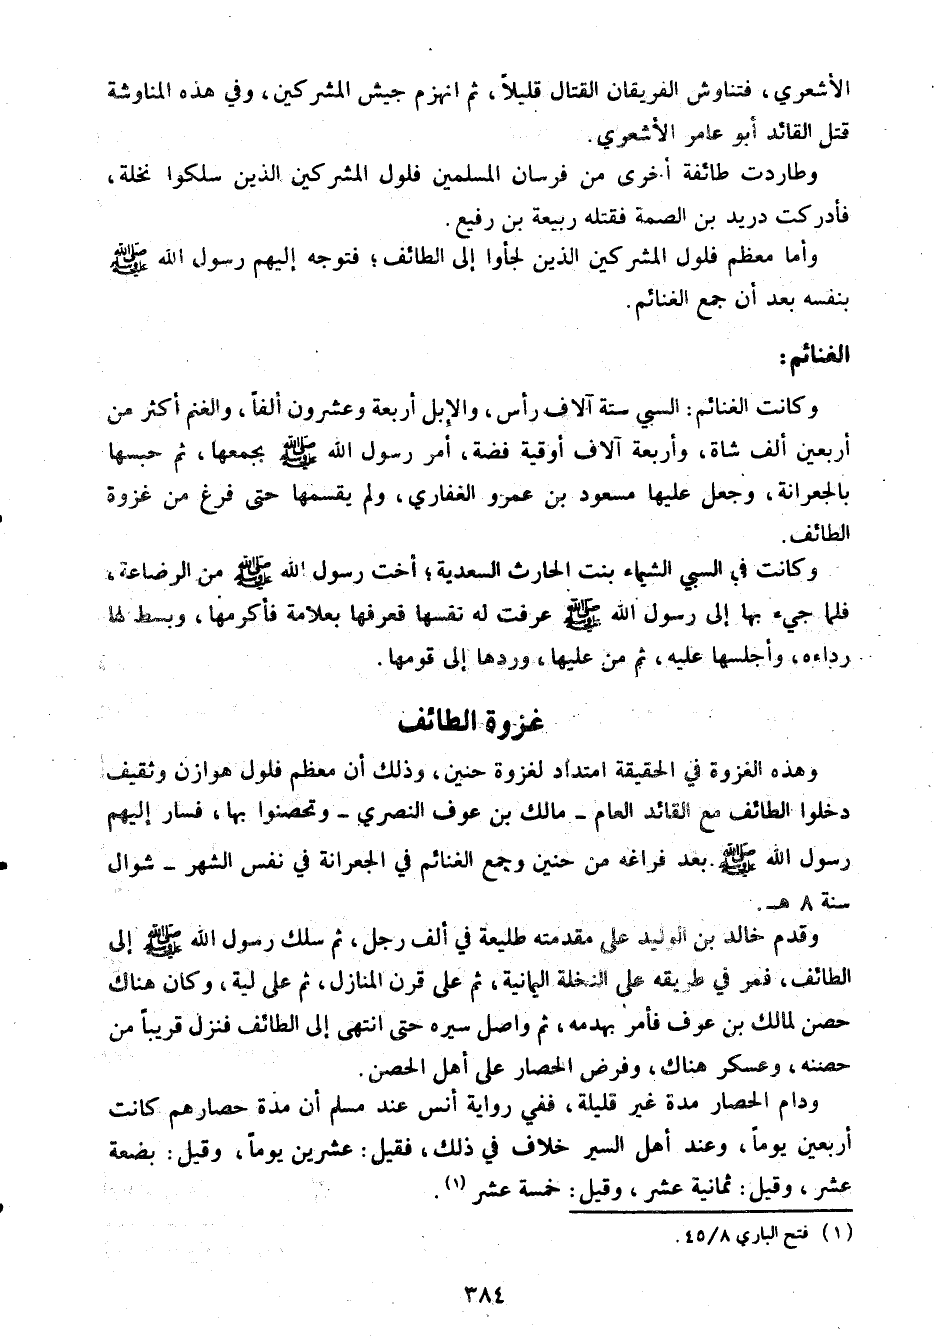 الأشعري، فتناوش الفريقان القتال قليلاً، ثم انهزم جيش المشركين، وفي هذه المناوشة
قتل القائد أبو عامر الأشعري.
وطاردت طائفة أخرى من فرسان المسلمين فلول المشركين الذين سلكوا نخلة،
فأدركت دريد بن الصمة فقتله ربيعة بن رفيع.
وأما معظم فلول المشركين الذين لجأوا إلى الطائف؛ فتوجه إليهم رسول الله ﷺ
بنفسه بعد أن جمع الغنائم.
الغنائم:
وكانت الغنائم: السبي ستة آلاف رأس، والإبل أربعة وعشرون ألفاً، والغنم أكثر من
أربعين ألف شاة، وأربعة آلاف أوقية فضة، أمر رسول الله ﷺ بجمعها، ثم حبسها
بالجعرانة، وجعل عليها مسعود بن عمرو الغفاري، ولم يقسمها حتى فرغ من غزوة
الطائف.
وكانت في السبي الشيماء بنت الحارث السعدية؛ أخت رسول الله ﷺ من الرضاعة،
فلما جيء بها إلى رسول الله ﷺ عرفت له نفسها فعرفها بعلامة فأكرمها، وبسط لها
رداءه، وأجلسها عليه، ثم من عليها، وردها إلى قومها.
غزوة الطائف
وهذه الغزوة في الحقيقة امتداد لغزوة حنين، وذلك أن معظم فلول هوازن وثقيف
دخلوا الطائف مع القائد العام ـ مالك بن عوف النصري ـ وتحصنوا بها، فسار إليهم
رسول الله ﷺ بعد فراغه من حنين وجمع الغنائم في الجعرانة في نفس الشهر ـ شوال
سنة ٨ هـ.
وقدم خالد بن الوليد على مقدمته طليعة في ألف رجل، ثم سلك رسول الله ﷺ إلى
الطائف، فمر في طريقه على النخلة اليمانية، ثم على قرن المنازل، ثم على لية، وكان هناك
حصن لمالك بن عوف فأمر بهدمه، ثم واصل سيره حتى انتهى إلى الطائف فنزل قريباً من
حصنه، وعسكر هناك، وفرض الحصار على أهل الحصن.
ودام الحصار مدة غير قليلة، ففي رواية أنس عند مسلم أن مدة حصارهم كانت
أربعين يوماً، وعند أهل السير خلاف في ذلك، فقيل: عشرين يوماً، وقيل: بضعة
عشر، وقيل: ثمانية عشر، وقيل: خمسة عشر (١).
(١) فتح الباري ٤٥/٨.
٣٨٤